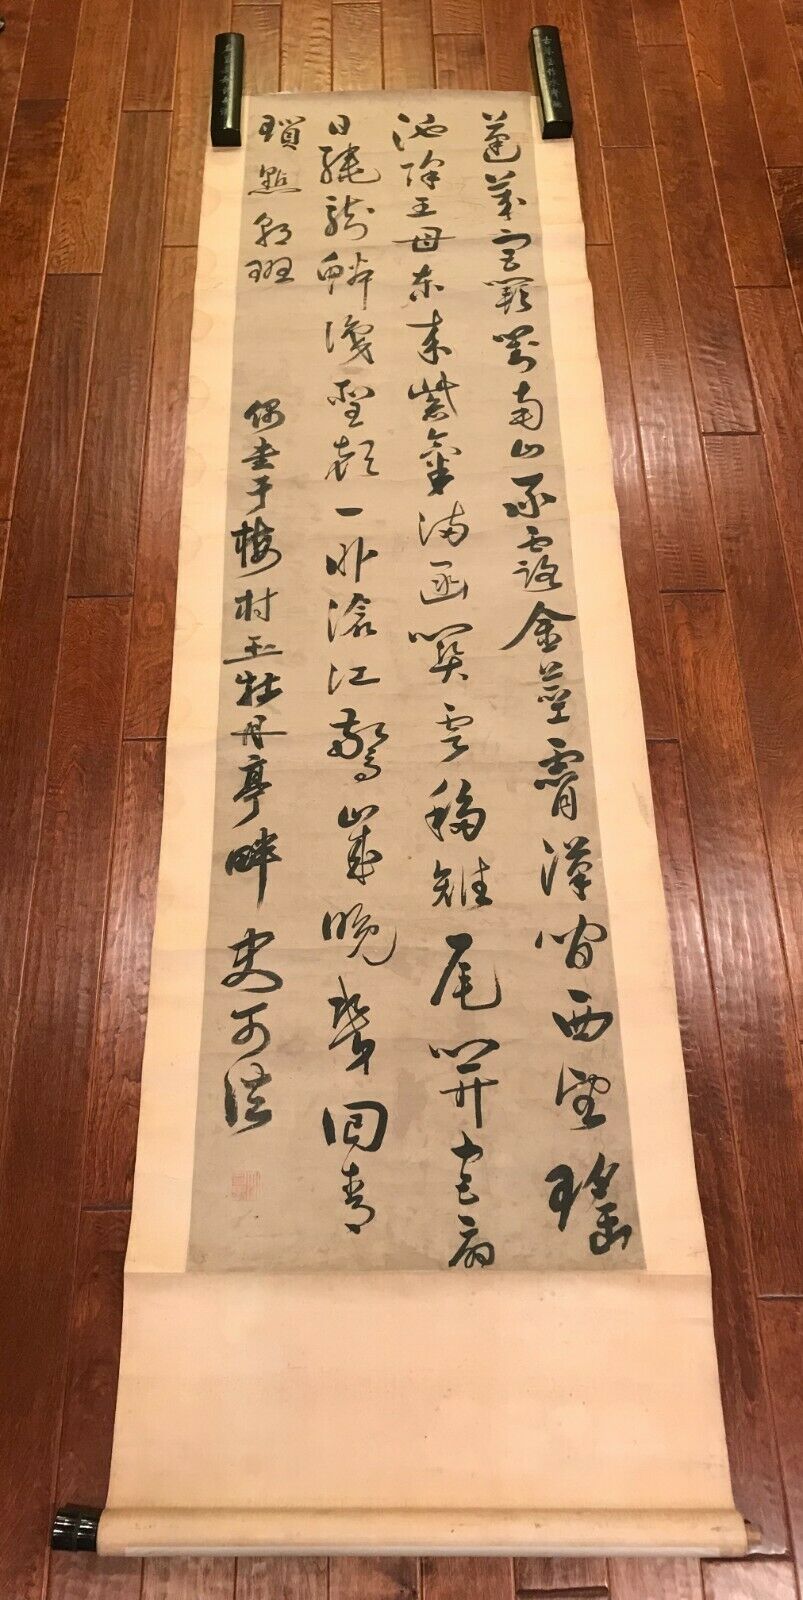 蓬萊宮闕對南山承露金莖霄漢間西望瑤
池降王母東來紫氣滿函關雲移雉尾開宮扇
日繞龍鱗識聖顏一臥滄江驚歲晚幾回青
瑣點朝班 偶書于梅村玉牡丹亭畔 史可法